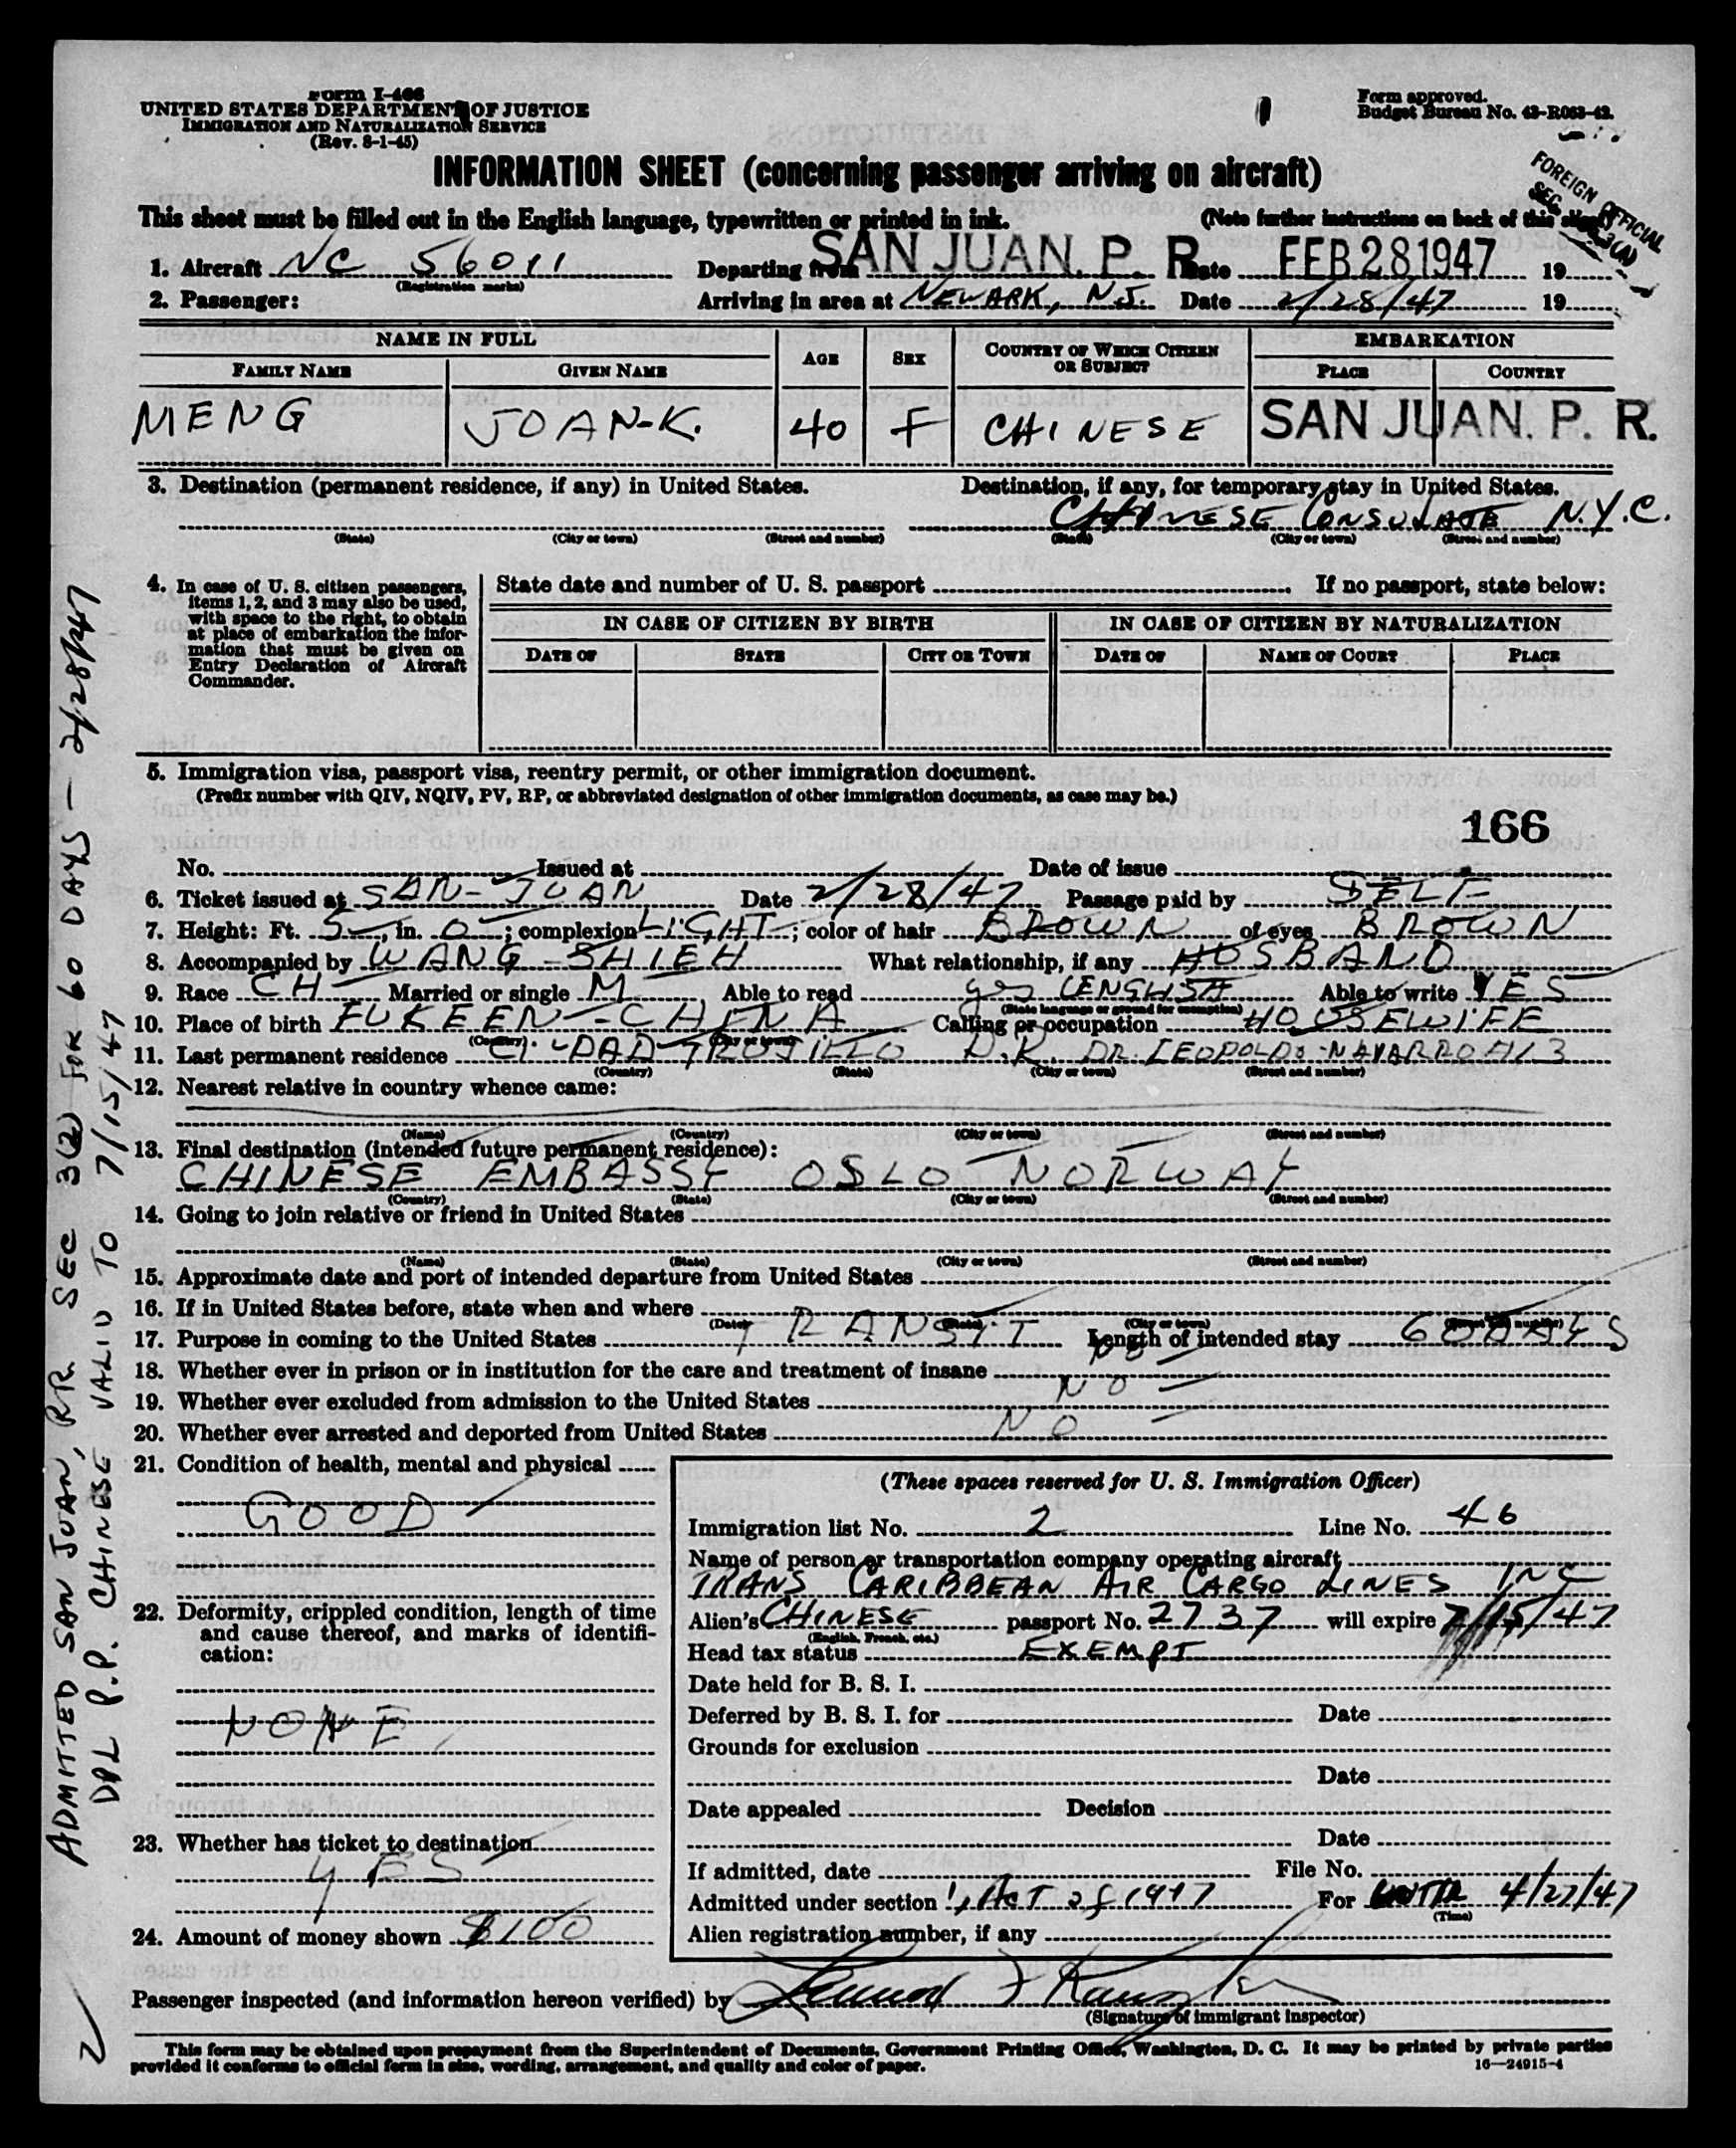 Form I-466
UNITED STATES DEPARTMENT OF JUSTICE
IMMIGRATION AND NATURALIZATION SERVICE
(Rev. 8-1-45)
Form approved.
Budget Bureau No. 43-R063-42.
INFORMATION SHEET (concerning passenger arriving on aircraft)
FOREIGN OFFICIAL
SEC. 3(1)
This sheet must be filled out in the English language, typewritten or printed in ink. (Note further instructions on back of this sheet)
1. Aircraft NC 56011 Departing from SAN JUAN. P. R. Date FEB 28 1947 19
(Registration marks)
2. Passenger: Arriving in area at NEWARK, N.J. Date 2/28/47 19
NAME IN FULL AGE SEX COUNTRY OF WHICH CITIZEN OR SUBJECT EMBARKATION
FAMILY NAME GIVEN NAME PLACE COUNTRY
MENG JOAN-K. 40 F CHINESE SAN JUAN. P. R.
3. Destination (permanent residence, if any) in United States. Destination, if any, for temporary stay in United States.
CHINESE CONSULATE N.Y.C.
(State) (City or town) (Street and number) (State) (City or town) (Street and number)
4. In case of U. S. citizen passengers, items 1, 2, and 3 may also be used, with space to the right, to obtain at place of embarkation the information that must be given on Entry Declaration of Aircraft Commander.
State date and number of U. S. passport If no passport, state below:
IN CASE OF CITIZEN BY BIRTH IN CASE OF CITIZEN BY NATURALIZATION
DATE OF STATE CITY OR TOWN DATE OF NAME OF COURT PLACE
5. Immigration visa, passport visa, reentry permit, or other immigration document.
(Prefix number with QIV, NQIV, PV, RP, or abbreviated designation of other immigration documents, as case may be.)
166
No. Issued at Date of issue
6. Ticket issued at SAN-JUAN Date 2/28/47 Passage paid by SELF
7. Height: Ft. 5, in. 0; complexion LIGHT; color of hair BROWN of eyes BROWN
8. Accompanied by WANG-SHIEH What relationship, if any HUSBAND
9. Race CH Married or single M Able to read yes (ENGLISH Able to write YES
(State language or ground for exemption)
10. Place of birth FUKEEN-CHINA Calling or occupation HOUSEWIFE
(Country) (City or town)
11. Last permanent residence CIUDAD TRUJILLO D.R. DR LEOPOLDO-NAVARRO #13
(Country) (State) (City or town) (Street and number)
12. Nearest relative in country whence came:
(Name) (Country) (City or town) (Street and number)
13. Final destination (intended future permanent residence):
CHINESE EMBASSY OSLO NORWAY
(Country) (State) (City or town) (Street and number)
14. Going to join relative or friend in United States
(Name) (State) (City or town) (Street and number)
15. Approximate date and port of intended departure from United States
16. If in United States before, state when and where
(Date) (State) (City or town) (Street and number)
17. Purpose in coming to the United States TRANSIT Length of intended stay 60 DAYS
18. Whether ever in prison or in institution for the care and treatment of insane NO
19. Whether ever excluded from admission to the United States NO
20. Whether ever arrested and deported from United States NO
21. Condition of health, mental and physical
GOOD
22. Deformity, crippled condition, length of time and cause thereof, and marks of identification:
NONE
23. Whether has ticket to destination
YES
24. Amount of money shown $100
(These spaces reserved for U. S. Immigration Officer)
Immigration list No. 2 Line No. 46
Name of person or transportation company operating aircraft
TRANS CARIBBEAN AIR CARGO LINES INC
Alien's CHINESE passport No. 2737 will expire 7/15/47
(English, French, etc.)
Head tax status EXEMPT
Date held for B. S. I.
Deferred by B. S. I. for Date
Grounds for exclusion
Date
Date appealed Decision
Date
If admitted, date File No.
Admitted under section ACT of 1917 For UNTIL 4/27/47
(Time)
Alien registration number, if any
Passenger inspected (and information hereon verified) by
(Signature of immigrant inspector)
This form may be obtained upon prepayment from the Superintendent of Documents, Government Printing Office, Washington, D. C. It may be printed by private parties
provided it conforms to official form in size, wording, arrangement, and quality and color of paper. 16—24915-4
ADMITTED SAN JUAN, P.R. SEC 3(2) FOR 60 DAYS - 2/28/47
DPL P.P. CHINESE VALID TO 7/15/47